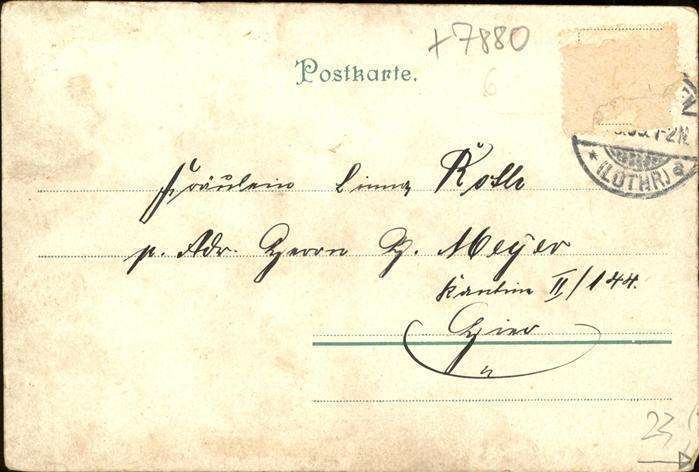 +7880
6
Postkarte.
(LOTHR)
Fräulein Linna Roth
p. Adr. Herrn H. Meyer
Kantine II/144.
Hier
23